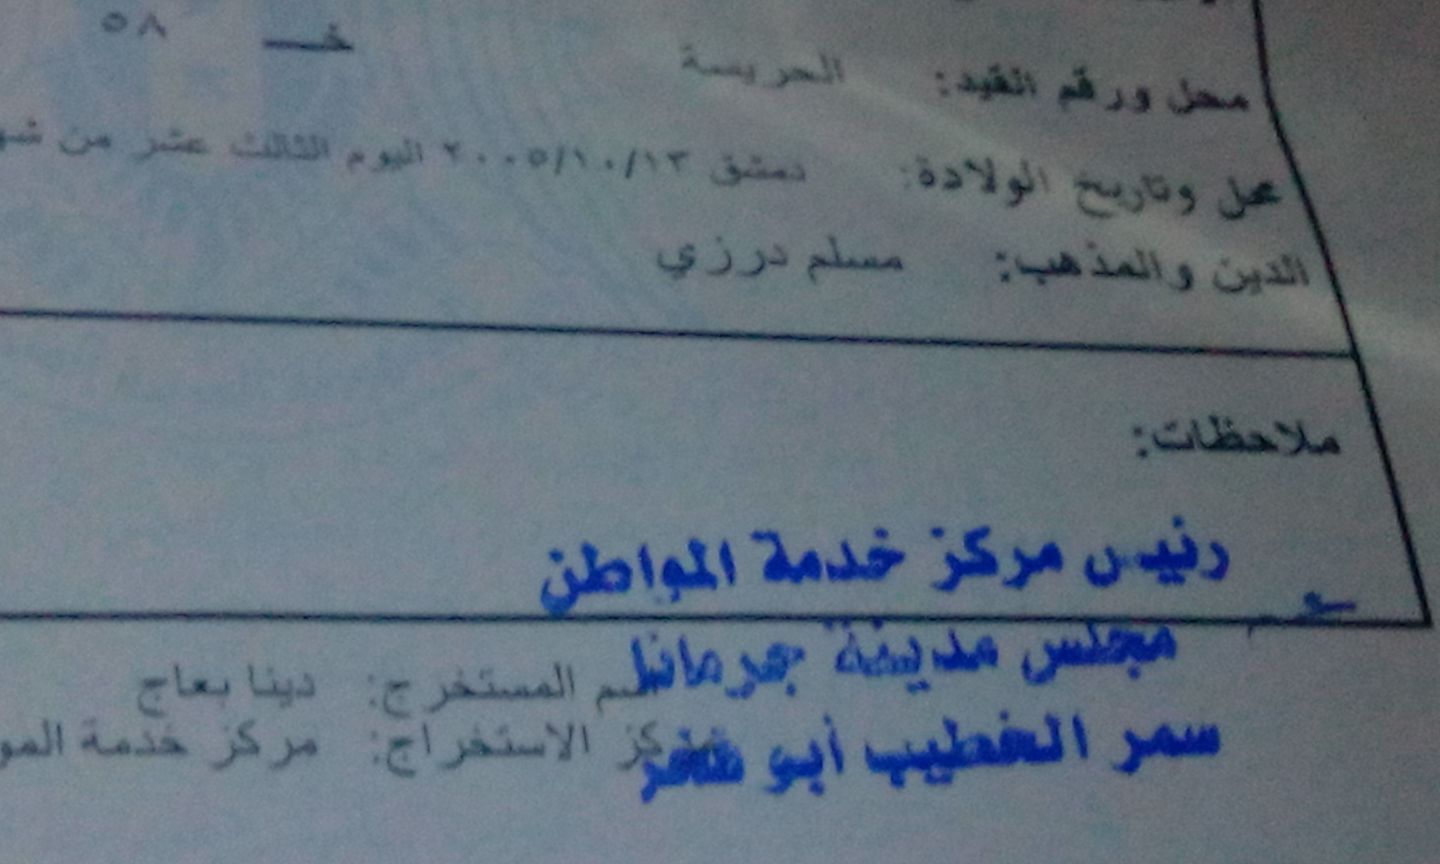 محل ورقم القيد: الحريسة خـــ ٥٨
محل وتاريخ الولادة: دمشق ٢٠٠٥/١٠/١٣ اليوم الثالث عشر من
الدين والمذهب: مسلم درزي
ملاحظات:
رئيس مركز خدمة المواطن
مجلس مدينة جرمانا
المستخرج: دينا بعاج
سمر الخطيب أبو فخر
مركز الاستخراج: مركز خدمة